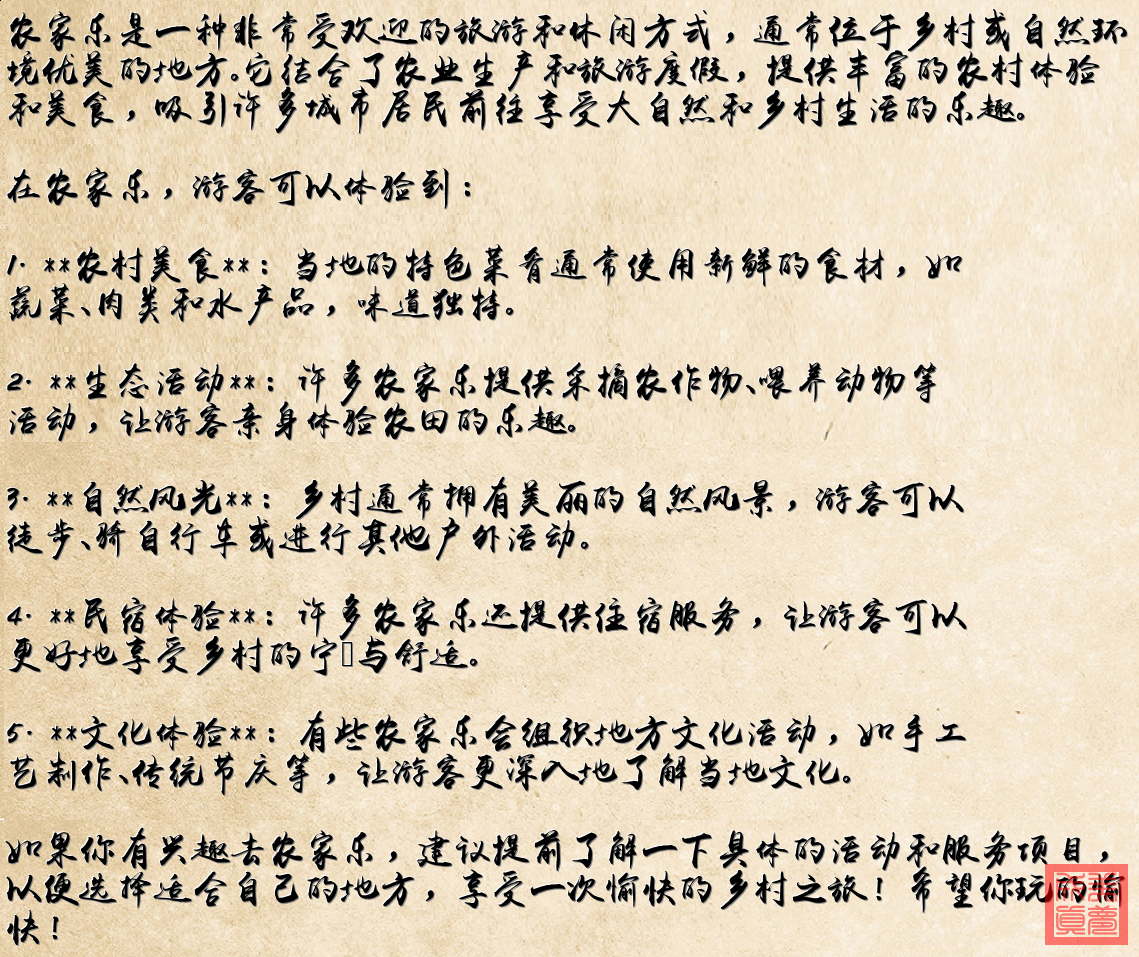 农家乐是一种非常受欢迎的旅游和休闲方式，通常位于乡村或自然环
境优美的地方。它结合了农业生产和旅游度假，提供丰富的农村体验
和美食，吸引许多城市居民前往享受大自然和乡村生活的乐趣。
在农家乐，游客可以体验到：
1. **农村美食**：当地的特色菜肴通常使用新鲜的食材，如
蔬菜、肉类和水产品，味道独特。
2. **生态活动**：许多农家乐提供采摘农作物、喂养动物等
活动，让游客亲身体验农田的乐趣。
3. **自然风光**：乡村通常拥有美丽的自然风景，游客可以
徒步、骑自行车或进行其他户外活动。
4. **民宿体验**：许多农家乐还提供住宿服务，让游客可以
更好地享受乡村的宁与舒适。
5. **文化体验**：有些农家乐会组织地方文化活动，如手工
艺制作、传统节庆等，让游客更深入地了解当地文化。
如果你有兴趣去农家乐，建议提前了解一下具体的活动和服务项目，
以便选择适合自己的地方，享受一次愉快的乡村之旅！希望你玩的愉
快！